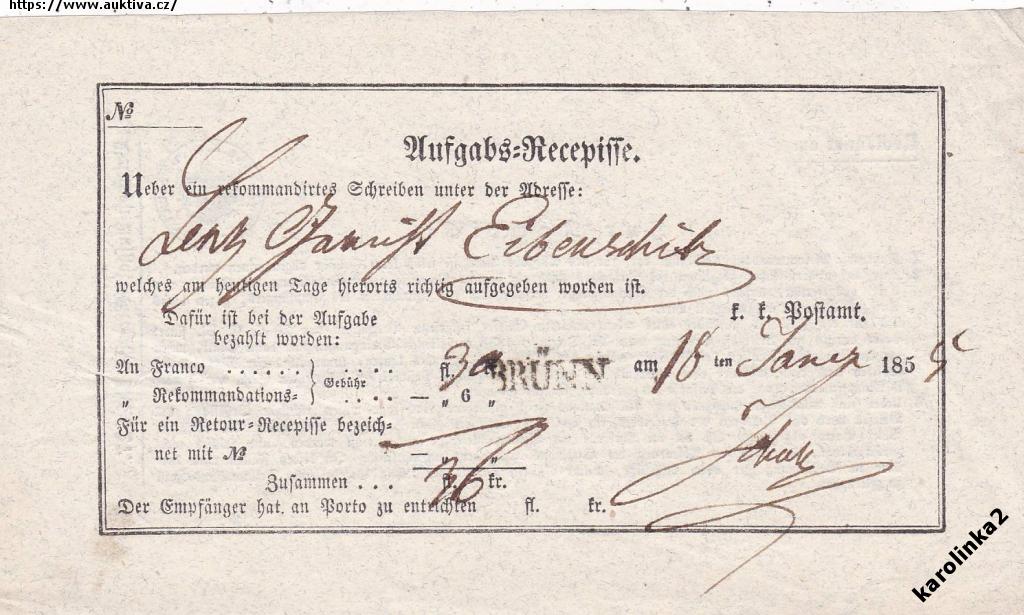 https://www.auktiva.cz/
No
Aufgabs=Recepisse.
Ueber ein rekommandirtes Schreiben unter der Adresse:
Eibenschitz
welches am heutigen Tage hierorts richtig aufgegeben worden ist.
k. k. Postamt.
Dafür ist bei der Aufgabe
bezahlt worden:
An Franco ...... } Gebühr .... fl. 30 BRÜNN am 18 ten 1855
„ Rekommandations= } .... — „ 6 „
Für ein Retour=Recepisse bezeich=
net mit No — „ „
Zusammen ... fl. 36 kr.
Der Empfänger hat an Porto zu entrichten fl. kr.
karolinka2